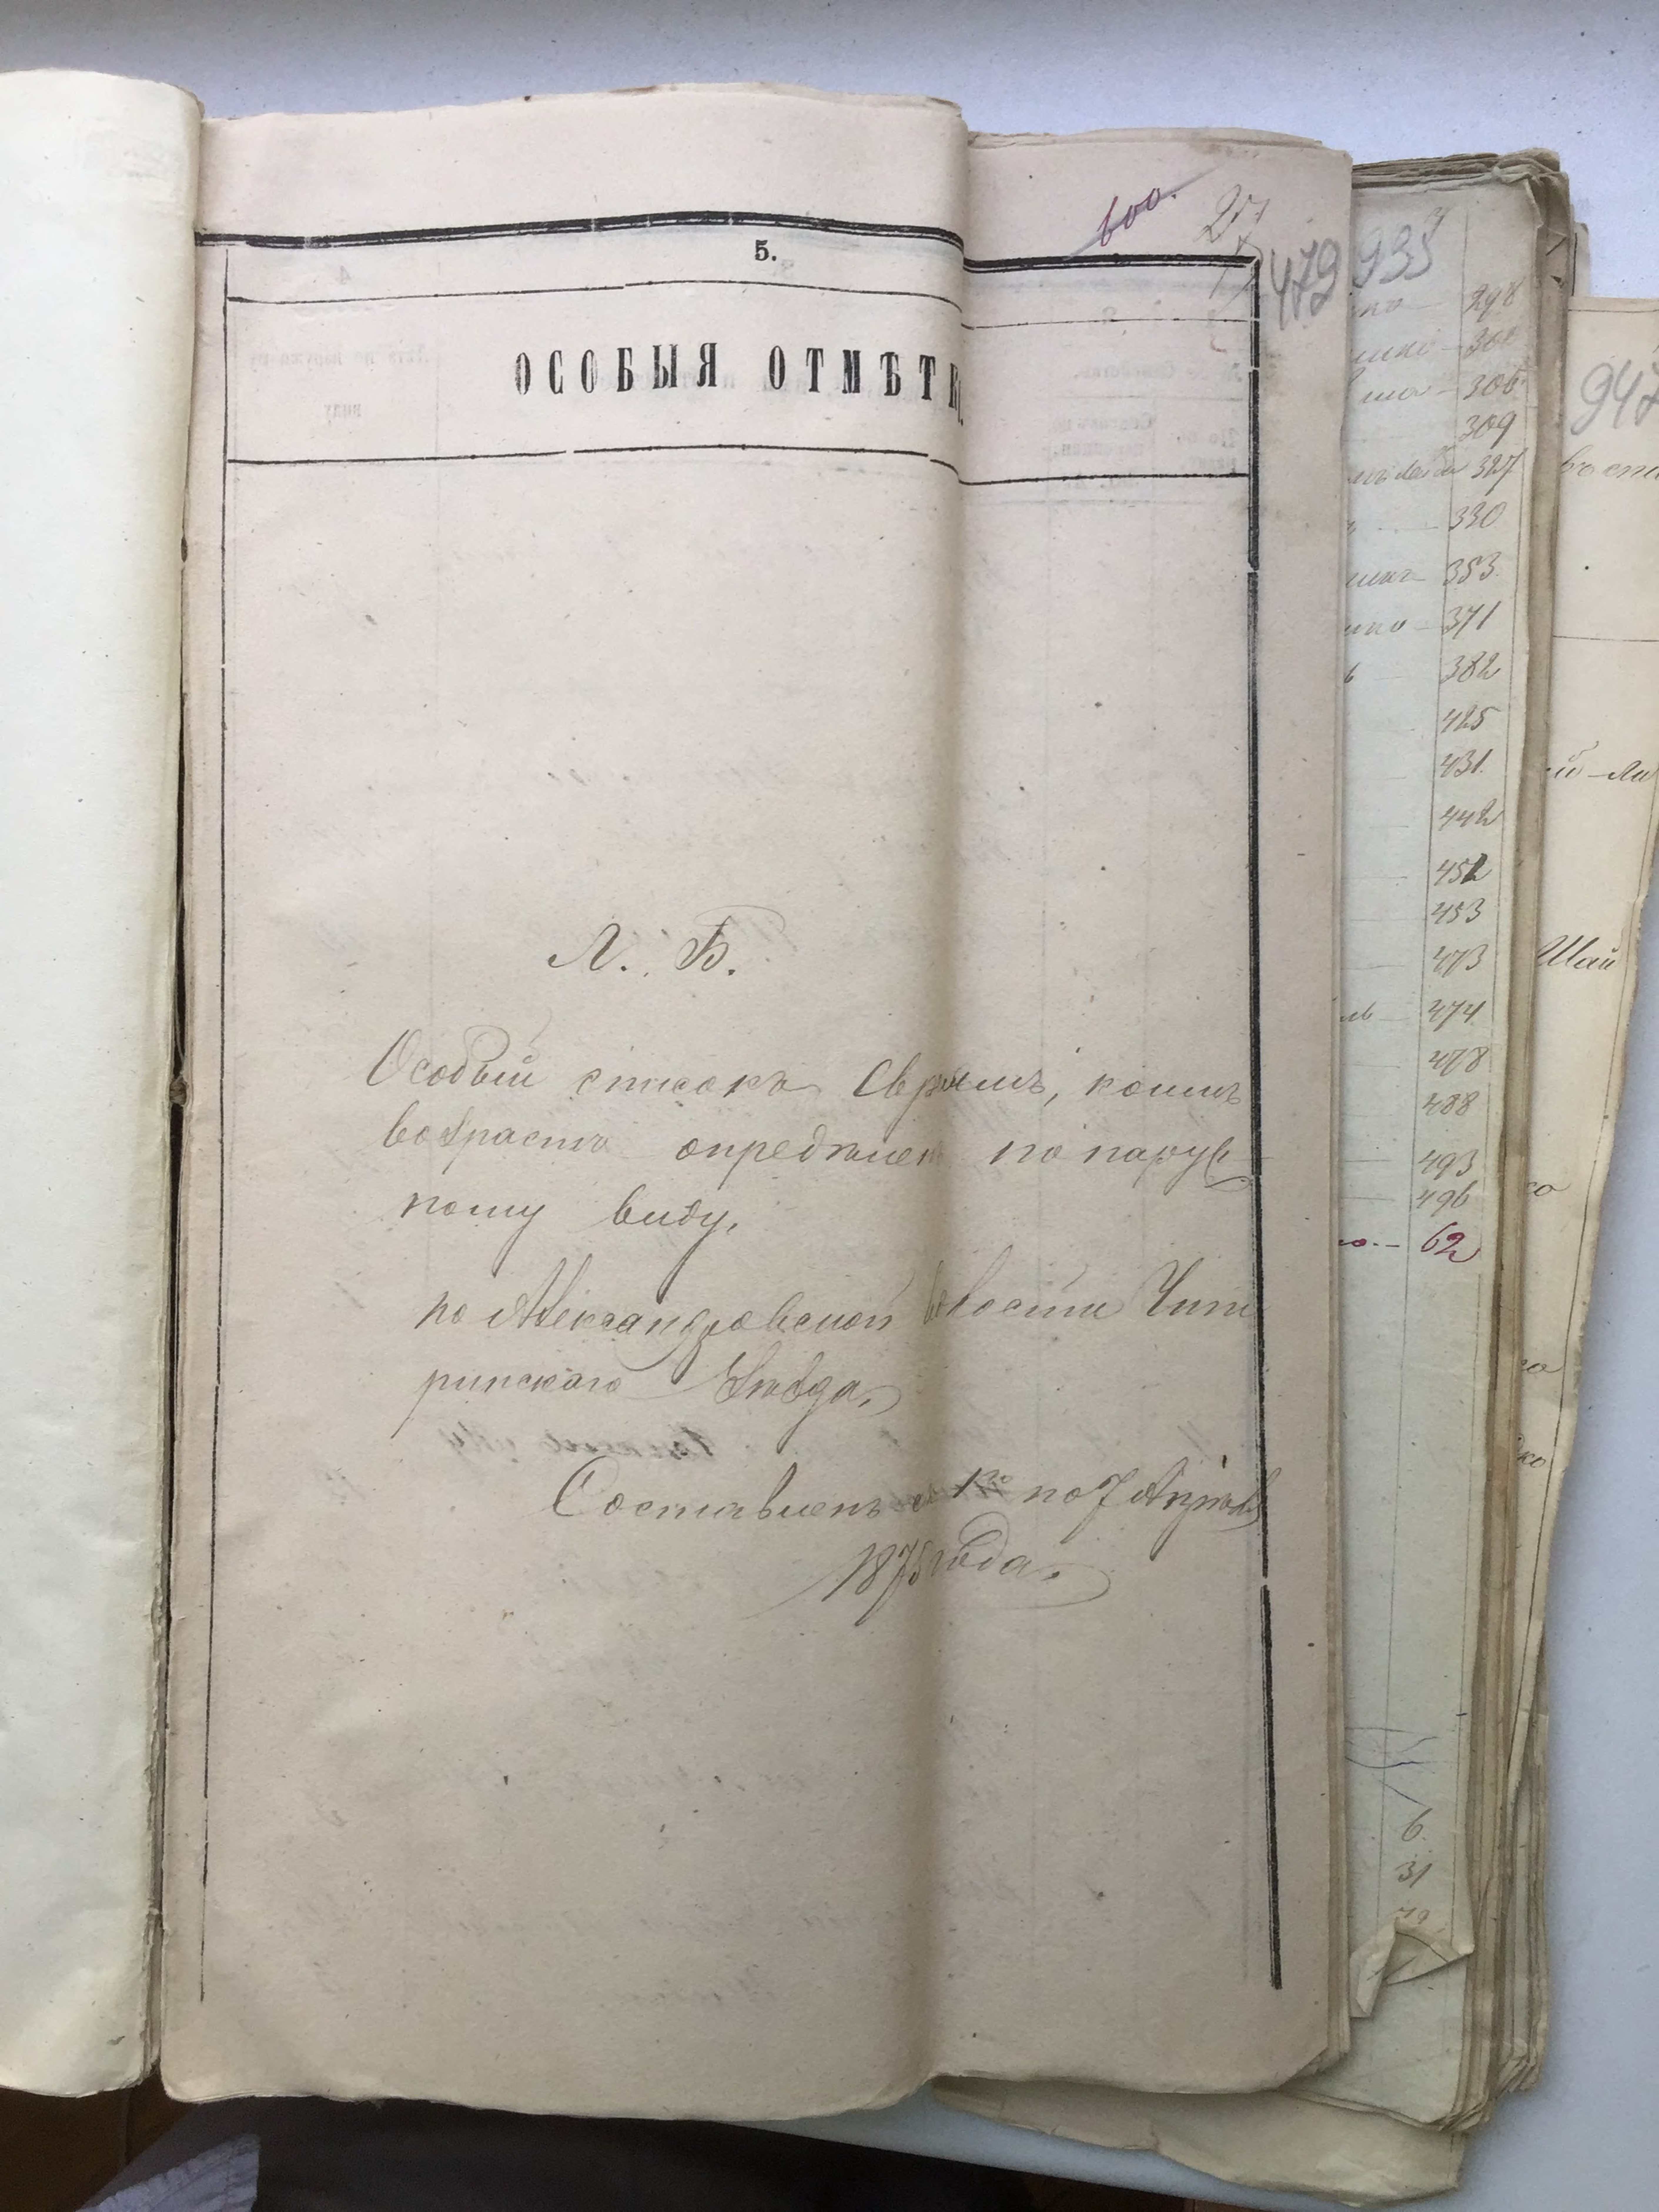 600.
27
479
935
5.
ОСОБЫЯ ОТМѢТК
Л. Б.
Особый списокъ Евреямъ, коимъ
возрастъ опредѣлен по наруж
ному виду,
по Александровской волости Чиги
ринскаго Уѣзда,
Составленъ по 7 Апрѣля
1875 года.
298
300
306
309
327
330
353
371
382
425
431.
442
452
453
473
474
478
488
493
496
62
6
31
947
Шай